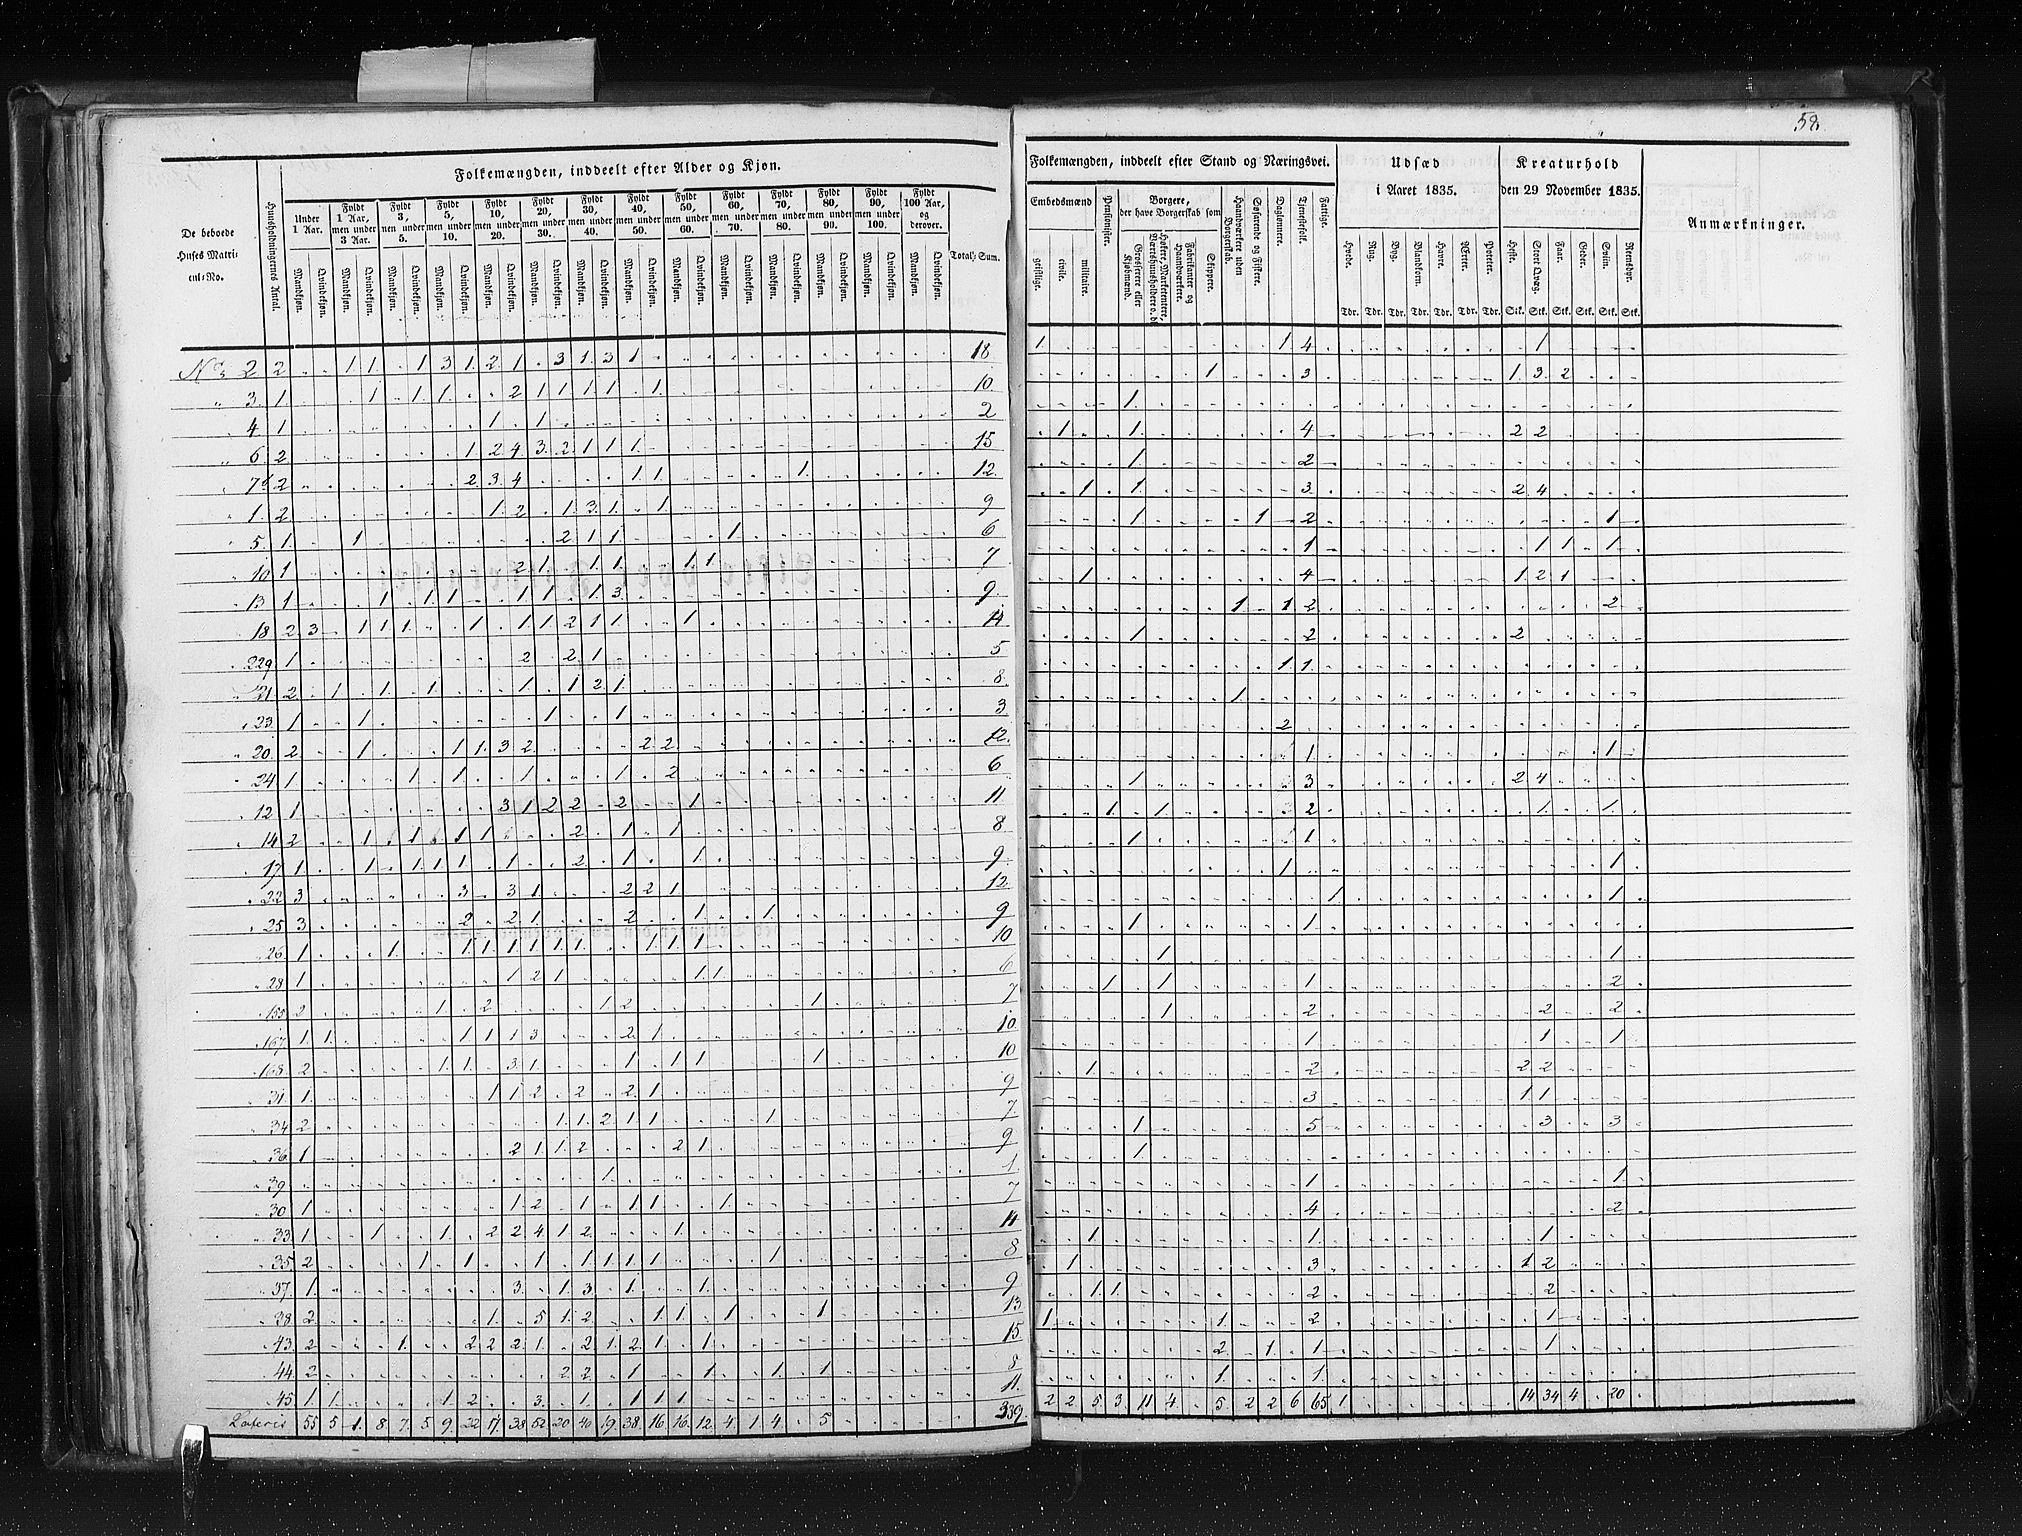 58.
Folkemængden, inddeelt efter Alder og Kjøn.
De beboede Huses Matricul-No.
Huusholdningernes Antal.
Under 1 Aar.
Fyldt 1 Aar, men under 3 Aar.
Fyldt 3, men under 5.
Fyldt 5, men under 10.
Fyldt 10, men under 20.
Fyldt 20, men under 30.
Fyldt 30, men under 40.
Fyldt 40, men under 50.
Fyldt 50, men under 60.
Fyldt 60, men under 70.
Fyldt 70, men under 80.
Fyldt 80, men under 90.
Fyldt 90, men under 100.
Fyldt 100 Aar, og derover.
Total-Sum.
Mandkjøn. Qvindekjøn. Mandkjøn. Qvindekjøn. Mandkjøn. Qvindekjøn. Mandkjøn. Qvindekjøn. Mandkjøn. Qvindekjøn. Mandkjøn. Qvindekjøn. Mandkjøn. Qvindekjøn. Mandkjøn. Qvindekjøn. Mandkjøn. Qvindekjøn. Mandkjøn. Qvindekjøn. Mandkjøn. Qvindekjøn. Mandkjøn. Qvindekjøn. Mandkjøn. Qvindekjøn. Mandkjøn. Qvindekjøn.
No 2 2 . . 1 1 . 1 3 1 2 1 . 3 1 3 1 18
" 3 1 1 1 1 2 1 1 1 1 1 10
" 4 1 1 1 2
" 6 2 1 2 4 3 2 1 1 1 15
" 7 2 2 3 4 1 1 1 12
" 1 2 1 2 1 3 1 1 9
" 5 1 1 2 1 1 1 6
" 10 1 2 1 1 1 1 1 7
" 13 1 1 1 1 1 1 1 3 9
" 18 2 3 1 1 1 1 1 1 2 1 1 1 14
" 229 1 2 2 1 5
" 21 2 1 1 1 1 1 2 1 8
" 23 1 1 1 1 3
" 20 2 1 1 1 3 2 2 2 12
" 24 1 1 1 1 1 2 6
" 12 1 3 1 2 2 2 1 11
" 14 2 1 1 1 1 2 1 1 8
" 17 1 1 1 1 1 1 2 1 1 9
" 22 3 3 3 1 2 2 1 12
" 25 3 2 2 1 2 1 1 9
" 26 1 1 1 1 1 1 1 1 1 1 1 10
" 28 1 1 2 1 1 1 6
" 153 2 1 2 1 2 1 7
" 167 1 1 1 1 1 3 2 1 10
" 168 2 1 1 3 1 1 1 1 1 10
" 31 1 1 1 2 2 2 1 9
" 34 2 1 1 2 1 1 1 7
" 36 1 2 1 1 2 2 1 9
" 39 1 1
" 30 1 1 2 1 1 1 1 7
" 33 1 1 1 2 2 4 1 2 1 14
" 35 2 1 1 1 1 1 1 1 1 8
" 37 1 3 1 3 1 1 9
" 38 2 1 5 1 2 1 1 1 1 13
" 43 2 1 2 2 2 1 2 1 2 1 1 15
" 44 2 2 2 1 1 1 8
" 45 1 1 1 2 3 1 1 1 1 11
Lateris 55 5 1 8 7 5 9 22 17 38 52 20 40 19 38 16 16 12 4 1 4 . 5 339
Folkemængden, inddeelt efter Stand og Næringsvei.
Embedsmænd
geistlige. civile. militaire.
Pensionister.
Borgere, der have Borgerskab som
Grosserere eller Kjøbmænd.
Fabrikanter og Haandværkere.
Skippere.
Haandværkere uden Borgerskab.
Søfarende og Fiskere.
Daglønnere.
Tjenestefolk.
Fattige.
Udsæd i Aaret 1835.
Hvede. Rug. Byg. Blandkorn. Havre. Ærter. Poteter.
Tdr. Tdr. Tdr. Tdr. Tdr. Tdr. Tdr.
Kreaturhold den 29 November 1835.
Heste. Stort Qvæg. Faar. Geder. Sviin. Rensdyr.
Stk. Stk. Stk. Stk. Stk. Stk.
Anmærkninger.
1 1 4 1
1 3 1 3 2
1
1 1 4 2 2
1 2
1 1 3 2 4
1 1 2 1
1 1 1 1
1 4 1 2 1
1 1 2 2
1 2 2
1 1
1
2
1 1
1 3 2 4
1 1 2 1 1
1 1
1 1
1 1
1 1
1 1
1 1 1 2
1 2 2 2
1 1 1
1 2 2 2
3 1 1
1 5 3 3
1
1 1
4 2
1 1 1
1 3 1 2
1 1 2 2
1 1 2 1
2 1 1 1
1 1
2 2 5 3 11 4 . 5 2 2 6 65 1 14 34 4 . 20